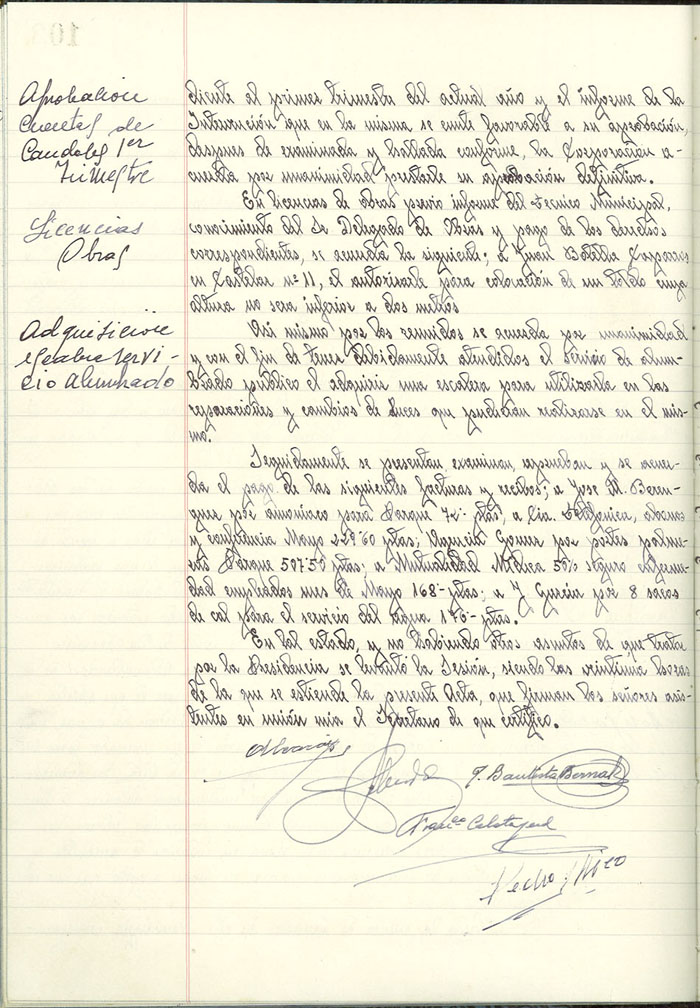 Aprobacion
Cuentas de
Caudales 1er
Trimestre
diente al primer trimestre del actual año y el informe de la
Intervención que en la misma se emite favorable a su aprobación,
despues de examinada y hallada conforme, la Corporación a-
cuerda por unanimidad prestarle su aprobación definitiva.
Licencias
Obras
En licencias de obras previo informe del Tecnico Municipal,
conocimiento del Sr Delegado de Obras y pago de los derechos
correspondientes, se acuerda la siguiente; a Juan Botella Caparros
en Castelar nº 11, el autorizarle para colocación de un toldo cuya
altura no sera inferior a dos metros
Adquisicion
escalera servi-
cio alumbrado
Asi mismo por los reunidos se acuerda por unanimidad
y con el fin de tener debidamente atendidos el servicio de alum-
brado público el adquirir una escalera para utilizarla en las
reparaciones y cambios de luces que pudieran realizarse en el mis-
mo.
Seguidamente se presentan, examinan, aprueban y se acuer-
da el pago de las siguientes facturas y recibos; a Jose M. Beren-
guer por amoniaco para Parque 72'- ptas, a Cia. Telefonica, abonos
y conferencia Mayo 229'60 ptas; Gomez por portes palme-
ras Parque 507'50 ptas; a Mutualidad Médica 50% seguro enferme-
dad empleados mes de Mayo 168'- ptas; a J Garcia por 8 sacos
de cal para el servicio del agua 176'- ptas.
En tal estado, y no habiendo otros asuntos de que tratar
por la Presidencia se levantó la Sesión, siendo las veintiuna horas
de la que se estiende la presente Acta, que firman los señores asis-
tentes en unión mia el Secretario de que certifico.
J. Bautista Bernab
Franco Calatayud
Pedro Rico